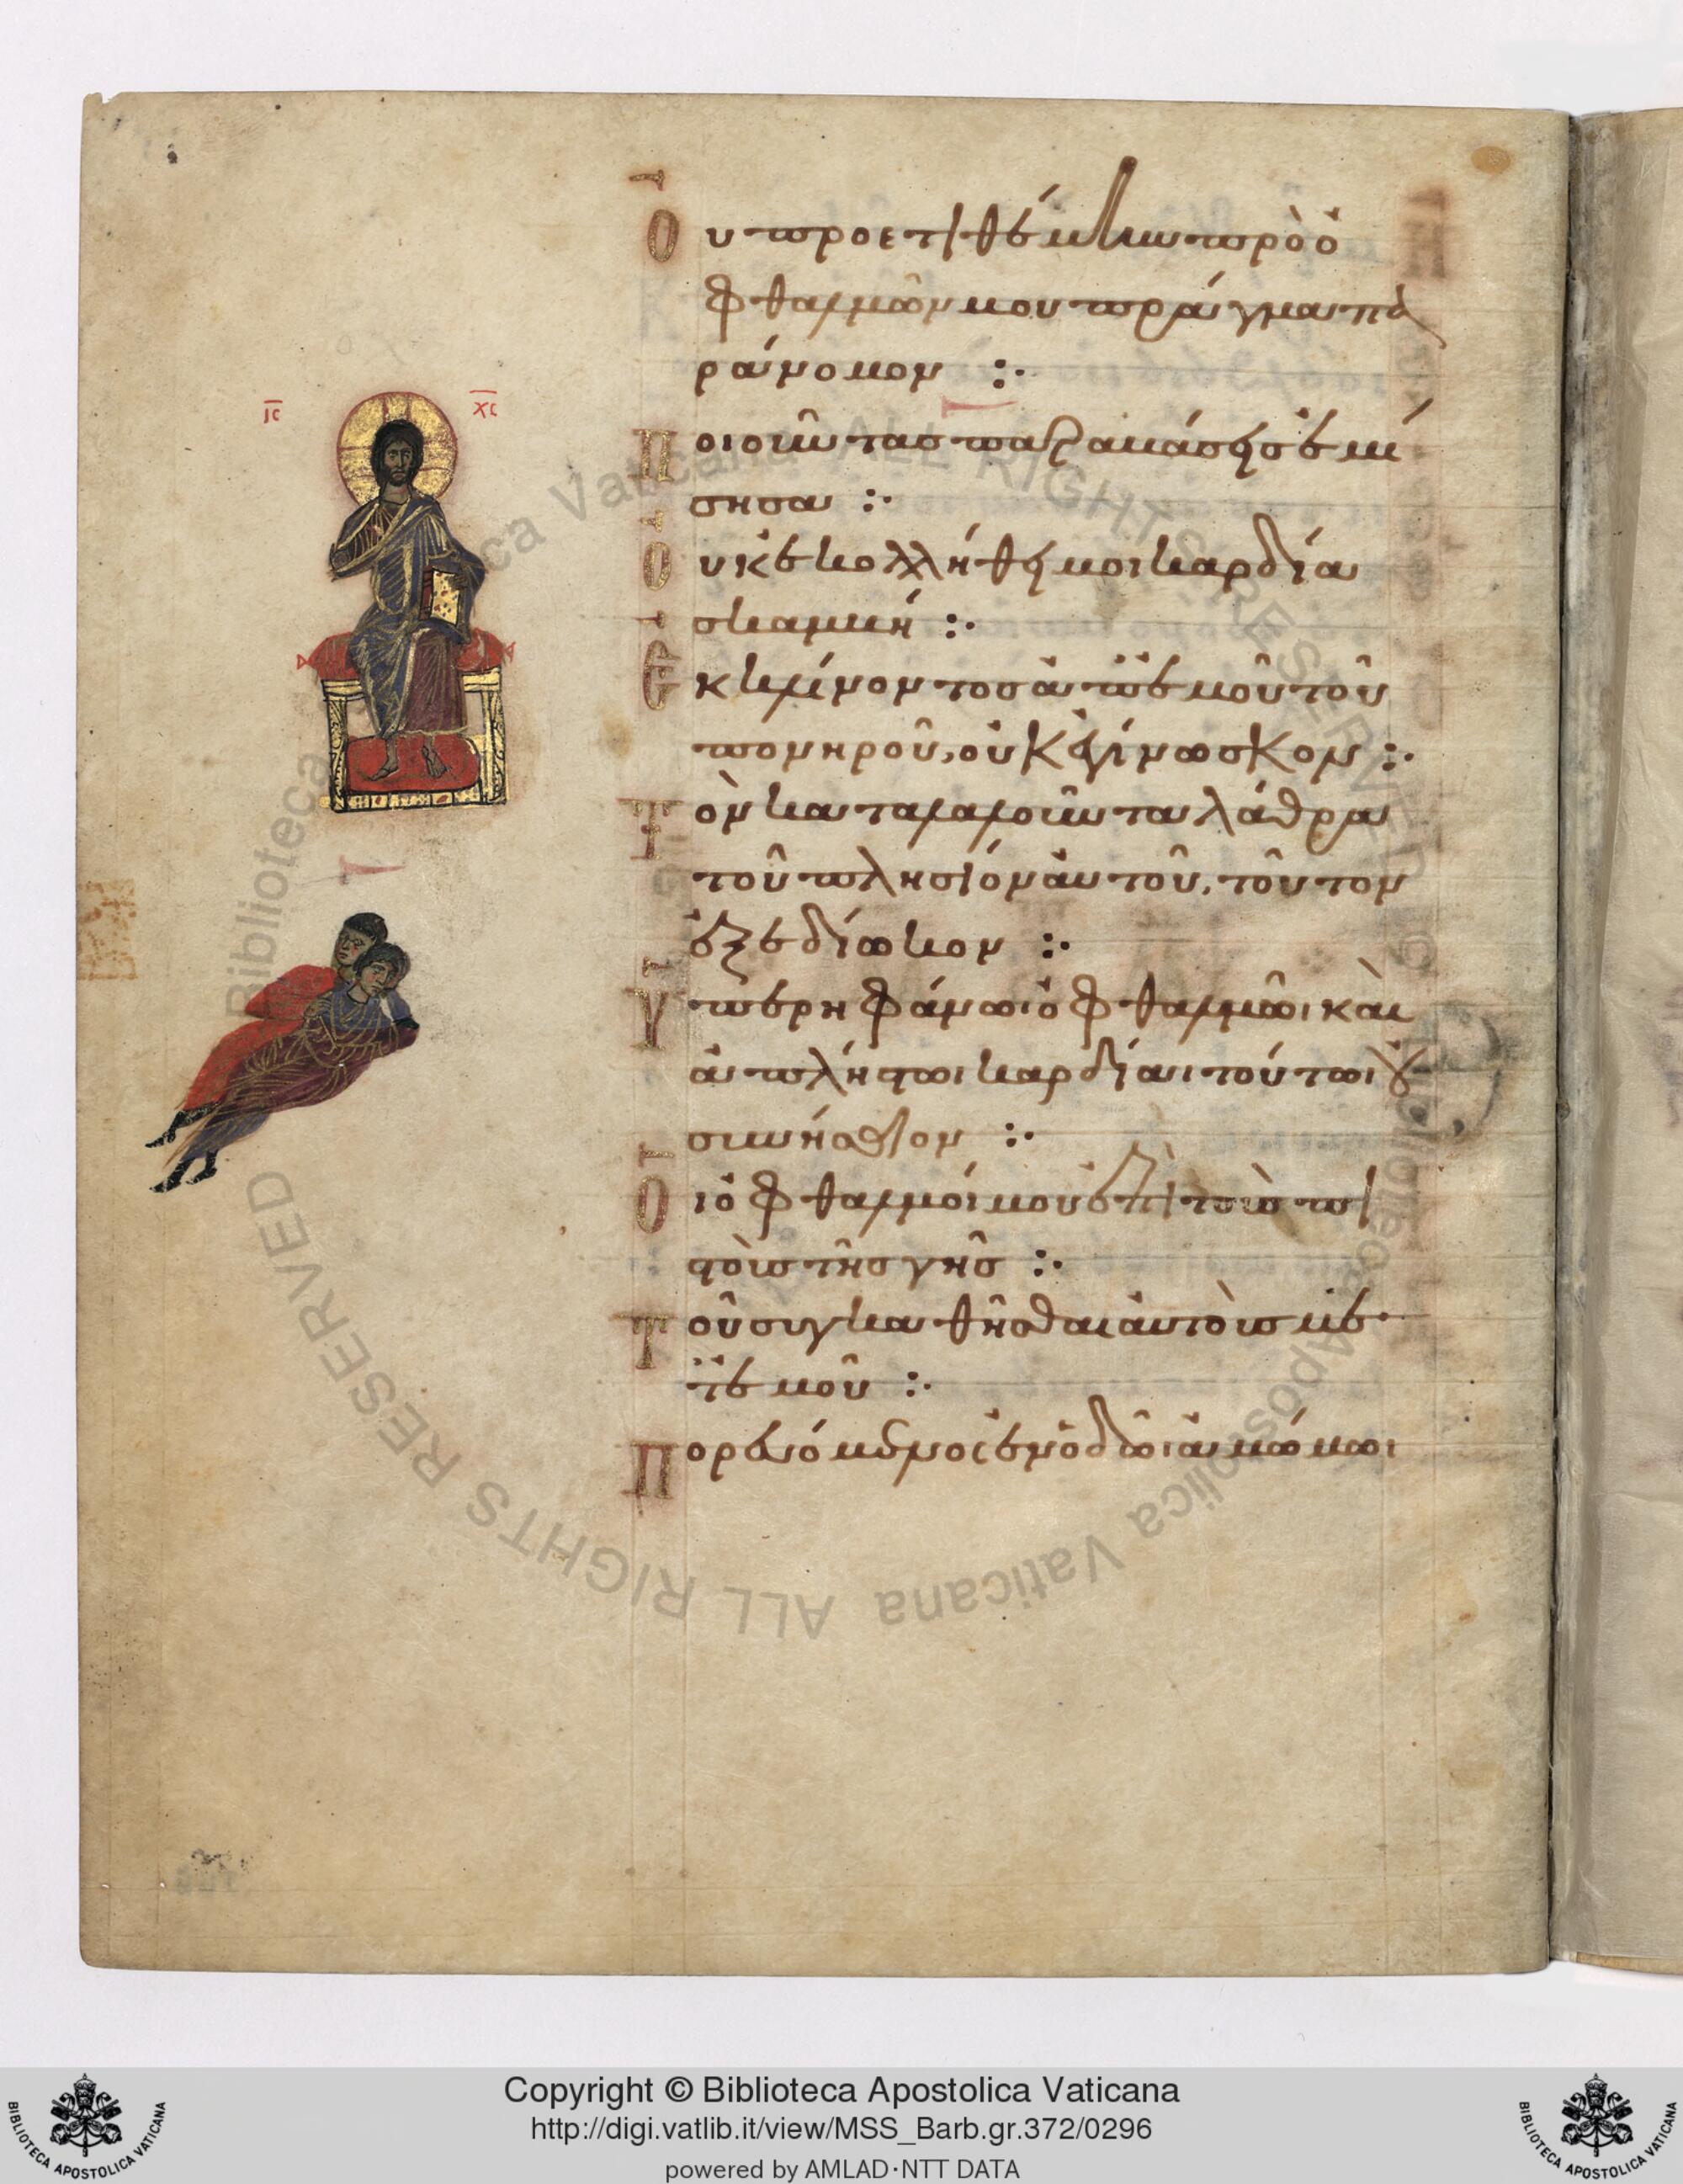 Οὐ προετιθέμην πρὸ ὀ
φθαλμῶν μου πρᾶγμα πα
ράνομον :·
ΙC ΧC
Ποιοῦντας παραβάσεις ἐμί
σησα :·
Οὐκ ἐκολλήθη μοι καρδία
σκαμβή :·
Ἐκκλίνοντος ἀπ' ἐμοῦ τοῦ
πονηροῦ, οὐκ ἐγίνωσκον :·
Τὸν καταλαλοῦντα λάθρα
τοῦ πλησίον αὐτοῦ, τοῦτον
ἐξεδίωκον :·
Ὑπερηφάνωι ὀφθαλμῶι καὶ
ἀπλήστωι καρδίαι τούτωι οὐ
συνήσθιον :·
Οἱ ὀφθαλμοί μου ἐπὶ τοὺς πι
στοὺς τῆς γῆς :·
Τοῦ συγκαθῆσθαι αὐτοὺς με
τ' ἐμοῦ :·
Πορευόμενος ἐν ὁδῶι ἀμώμωι
Biblioteca Apostolica Vaticana ALL RIGHTS RESERVED ©
Biblioteca Apostolica Vaticana ALL RIGHTS RESERVED
Copyright © Biblioteca Apostolica Vaticana
http://digi.vatlib.it/view/MSS_Barb.gr.372/0296
powered by AMLAD·NTT DATA
BIBLIOTECA APOSTOLICA VATICANA
BIBLIOTECA APOSTOLICA VATICANA